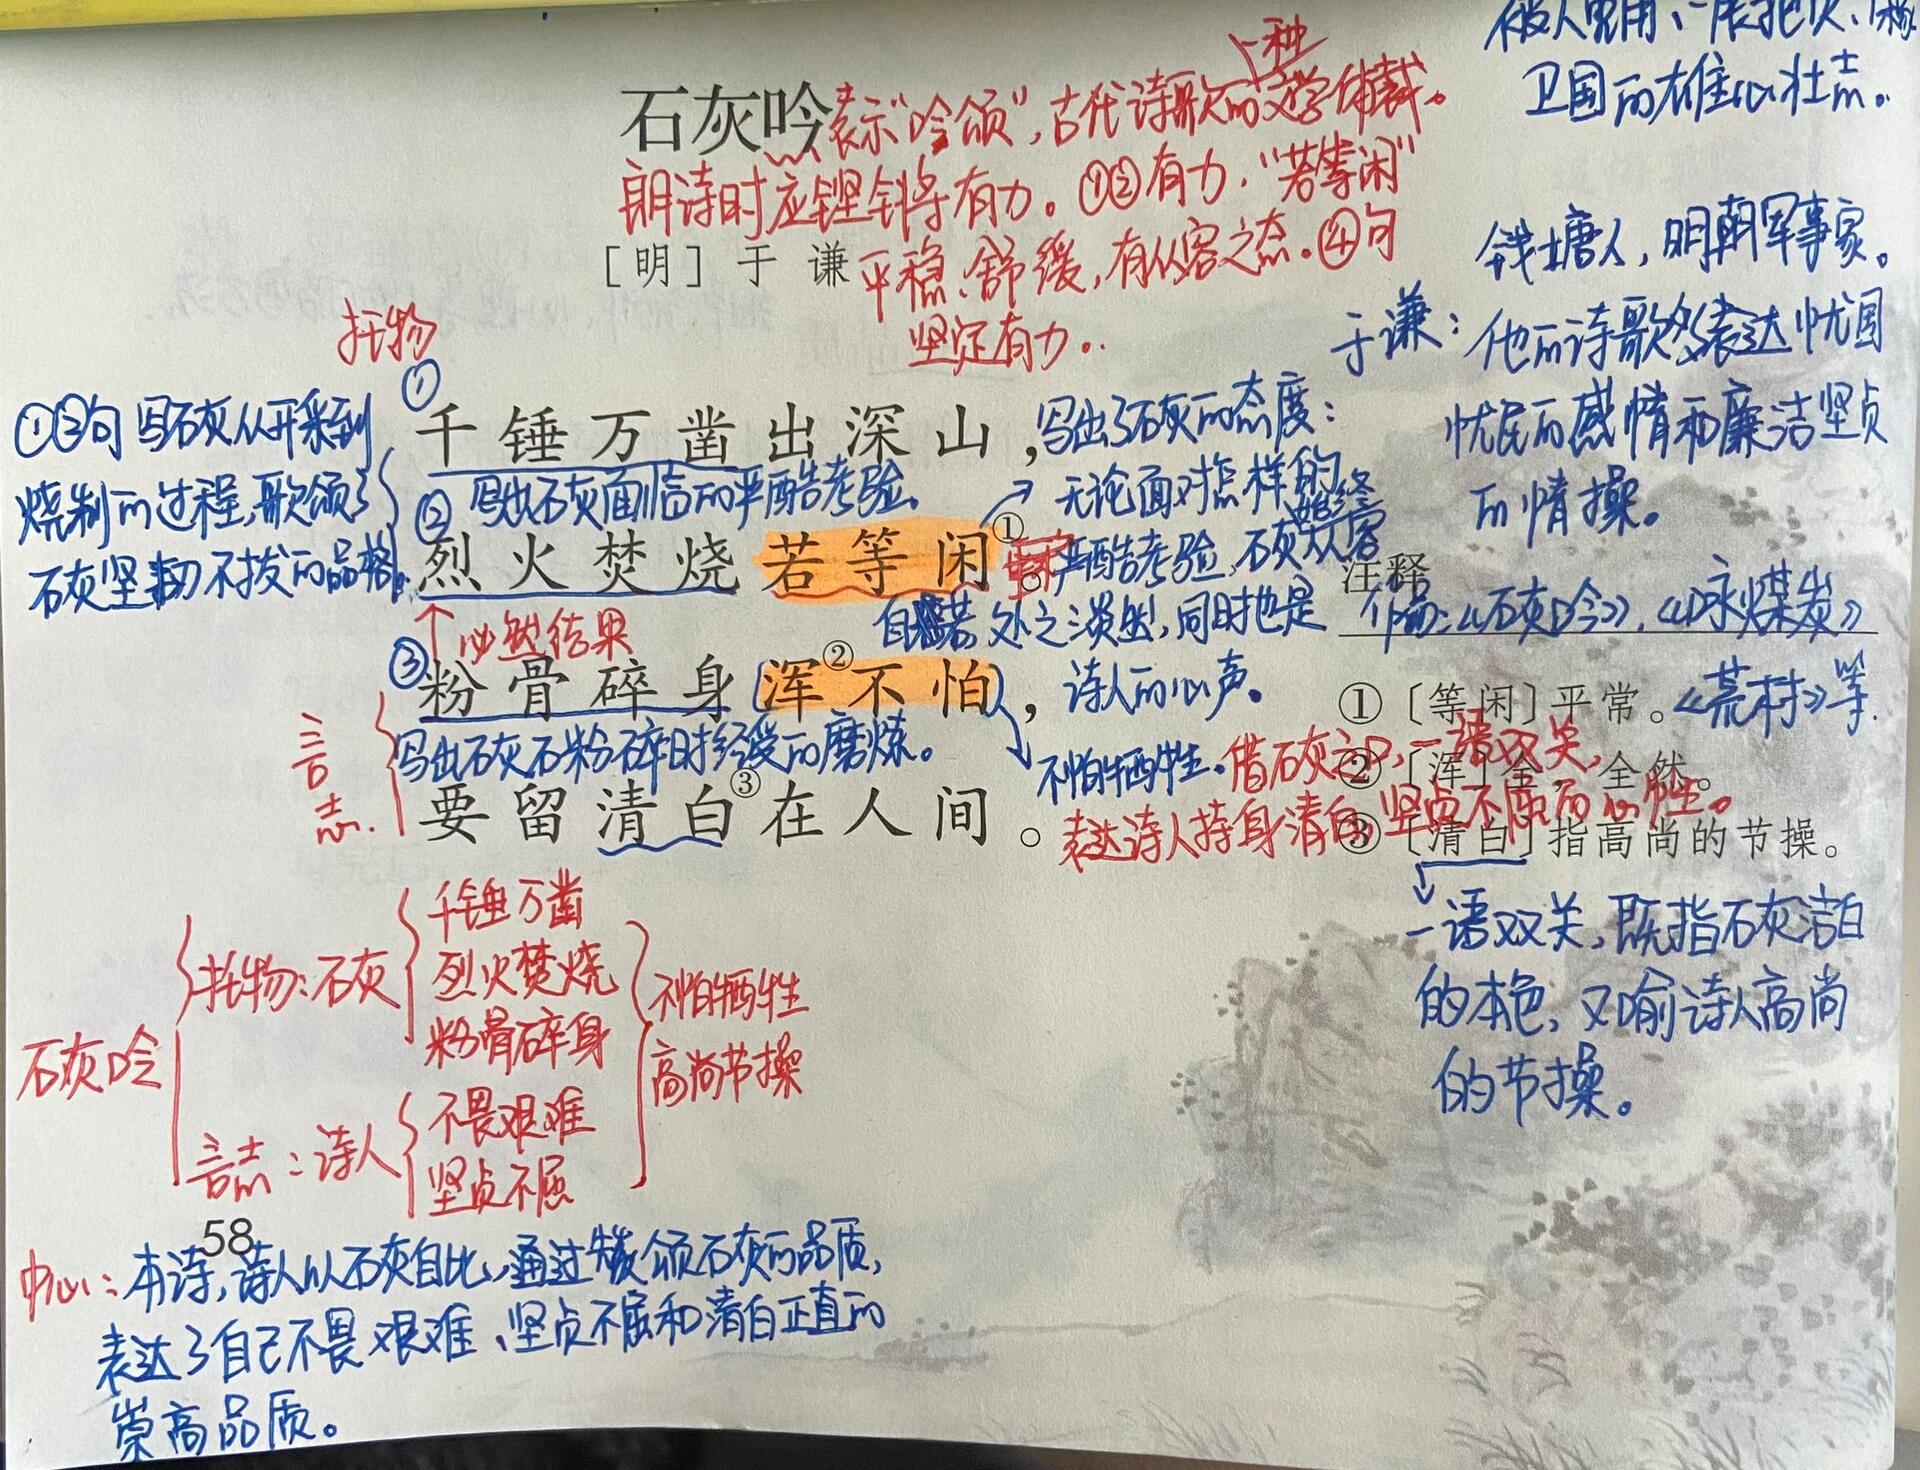 卫国的雄心壮志。
一种
石灰吟 表示“吟颂”，古代诗歌的文学体裁。
朗诗时应铿锵有力。①②有力，“若等闲”
[明] 于 谦 平稳、舒缓，有从容之态。④句
坚定有力。
钱塘人，明朝军事家。
于谦：他的诗歌多表达忧国
忧民的感情和廉洁坚贞
的情操。
作品：《石灰吟》、《咏煤炭》
《荒村》等
托物
①
千锤万凿出深山，
①②句写石灰从开采到
烧制的过程，歌颂了
石灰坚韧不拔的品格。
② 写出石灰面临的严酷考验。
烈火焚烧若等闲①。
写出了石灰的态度：
无论面对怎样的
严酷考验，石灰始终从容
自若，处之淡然，同时也是
诗人的心声。
必然结果
③
粉骨碎身浑②不怕，
不怕牺牲。
写出石灰石粉碎时经受的磨炼。
言志.
要留清白③在人间。
借石灰之口，一语双关，
表达诗人持身清白，坚贞不屈的心性。
注释
①〔等闲〕平常。
②〔浑〕全，全然。
③〔清白〕指高尚的节操。
一语双关，既指石灰洁白
的本色，又喻诗人高尚
的节操。
石灰吟
托物：石灰
千锤万凿
烈火焚烧
粉骨碎身
言志：诗人
不畏艰难
坚贞不屈
不怕牺牲
高尚节操
58
中心：本诗，诗人以石灰自比，通过歌颂石灰的品质，
表达了自己不畏艰难、坚贞不屈和清白正直的
崇高品质。